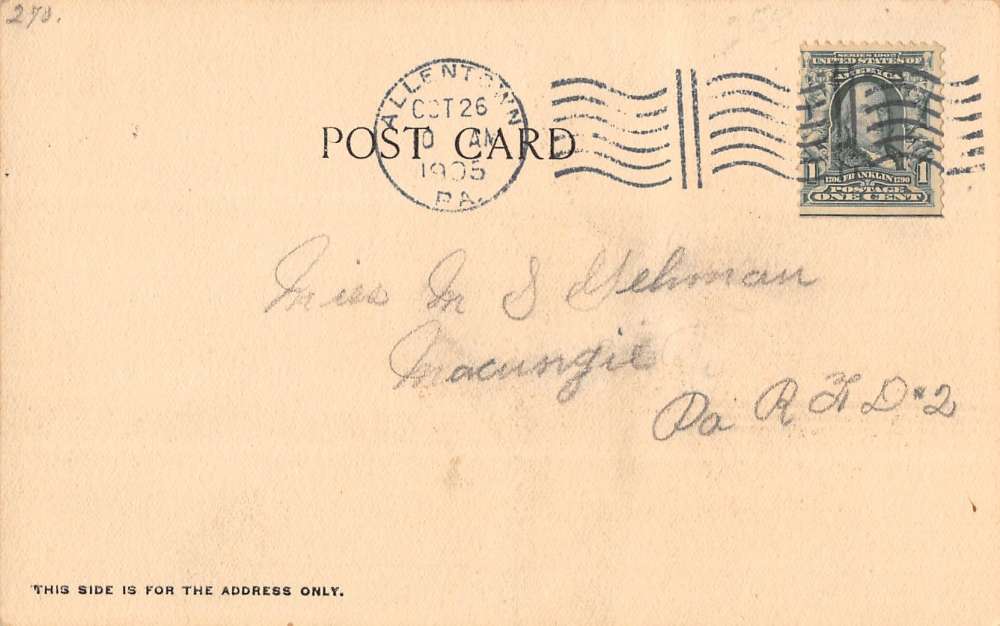 270.
ALLENTOWN
OCT 26
AM
1905
PA.
POST CARD
SERIES 1902
UNITED STATES OF
AMERICA
1 1706 FRANKLIN 1790 1
POSTAGE
ONE CENT
Miss M S Gehman
Macungie
Pa R F D #2
THIS SIDE IS FOR THE ADDRESS ONLY.